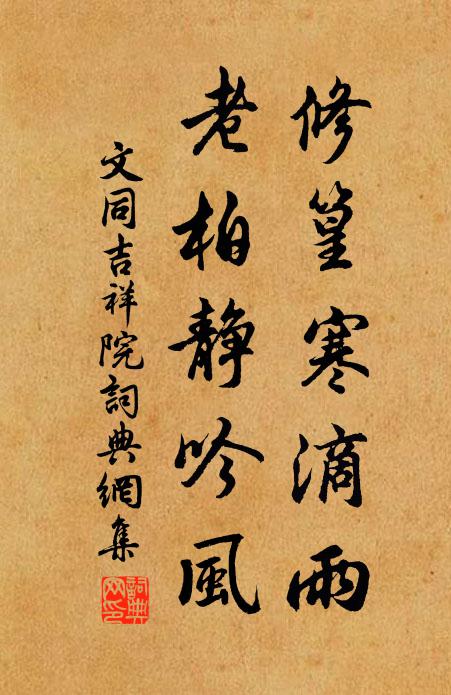 修篁寒滴雨
老柏静吟風
文同吉祥院詞典網集
詞典網印